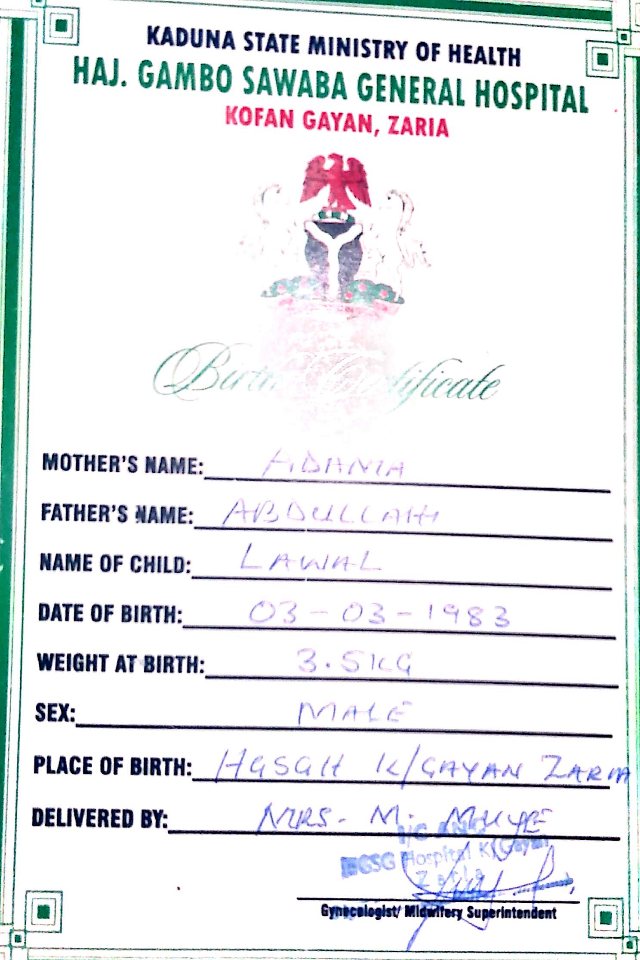 KADUNA STATE MINISTRY OF HEALTH
HAJ. GAMBO SAWABA GENERAL HOSPITAL
KOFAN GAYAN, ZARIA
Birth Certificate
MOTHER'S NAME:
FATHER'S NAME: ABDULLAHI
NAME OF CHILD: LAWAL
DATE OF BIRTH: 03-03-1983
WEIGHT AT BIRTH: 3.5KG
SEX: MALE
PLACE OF BIRTH: HGSGH K/GAYAN ZARIA
DELIVERED BY: MRS. M.
Hospital K/Gayan
Zaria
Gynecologist/ Midwifery Superintendent